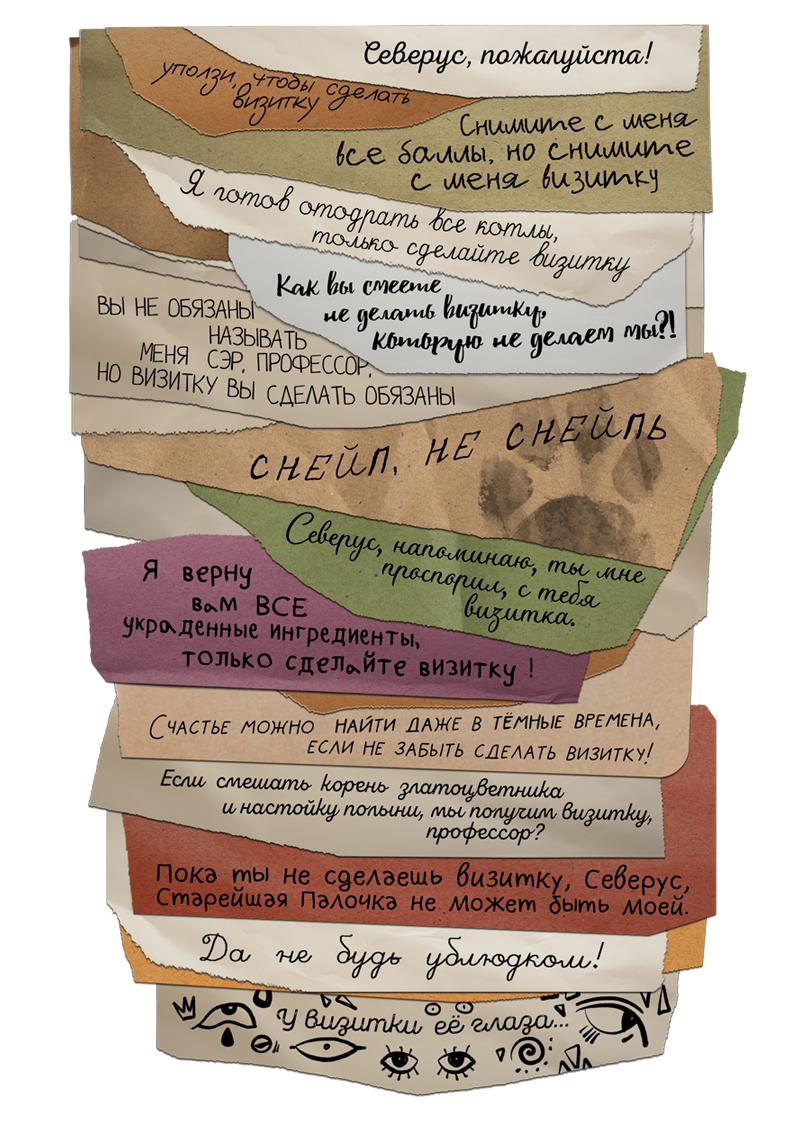 Северус, пожалуйста!
уползи, чтобы сделать
визитку
Снимите с меня
все баллы, но снимите
с меня визитку
Я готов отодрать все котлы,
только сделайте визитку
Как вы смеете
не делать визитку,
которую не делаем мы?!
ВЫ НЕ ОБЯЗАНЫ
НАЗЫВАТЬ
МЕНЯ СЭР, ПРОФЕССОР,
НО ВИЗИТКУ ВЫ СДЕЛАТЬ ОБЯЗАНЫ
СНЕЙП, НЕ СНЕЙПЬ
Северус, напоминаю, ты мне
проспорил, с тебя
визитка.
Я верну
вам ВСЕ
украденные ингредиенты,
только сделайте визитку!
Счастье можно найти даже в тёмные времена,
если не забыть сделать визитку!
Если смешать корень златоцветника
и настойку полыни, мы получим визитку,
профессор?
Пока ты не сделаешь визитку, Северус,
Старейшая Палочка не может быть моей.
Да не будь ублюдком!
У визитки её глаза...